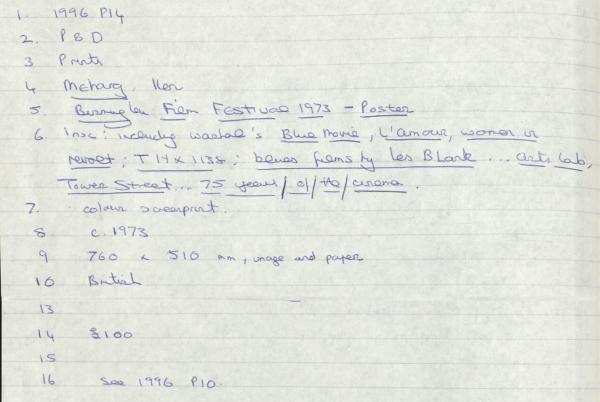 1. 1996 P14
2. P B D
3 Prints
4 Meharg, Ken
5. Birmingham Film Festival 1973 - Poster
6. Insc: including Warhol's Blue Movie, L'amour, women in
revolt; T 14 x 1138; blues films by Les Blank ... Arts Lab,
Tower Street ... 75 years / of / the / cinema.
7. colour screenprint.
8 c. 1973
9 760 x 510 mm, image and paper
10 British
13
14 £100
15
16 See 1996 P10.